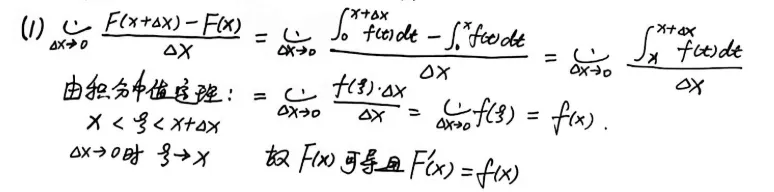 (1) lim_{Δx→0} \frac{F(x+Δx)-F(x)}{Δx} = lim_{Δx→0} \frac{∫_0^{x+Δx} f(t)dt - ∫_0^x f(t)dt}{Δx} = lim_{Δx→0} \frac{∫_x^{x+Δx} f(t)dt}{Δx}
由积分中值定理: = lim_{Δx→0} \frac{f(ξ)·Δx}{Δx} = lim_{Δx→0} f(ξ) = f(x).
x < ξ < x+Δx
Δx→0时 ξ→x 故 F(x) 可导且 F'(x) = f(x)